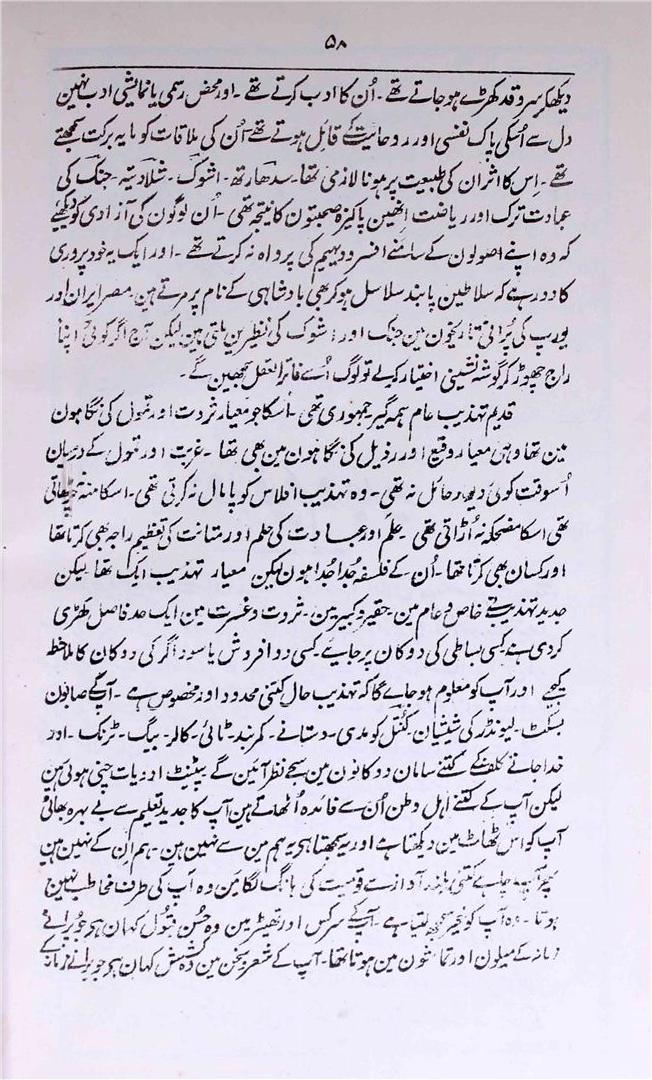 ۵۸
دیکھکر سروقد کھڑے ہو جاتے تھے ۔ اُن کا ادب کرتے تھے ۔ اور محض رسمی یا نمایشی ادب نہین
دل سے اُنکی پاک نفسی اور روحانیت کے قائل ہوتے تھے اُن کی ملاقات کو مایہ برکت سمجھتے
تھے ۔ اِس کا اثر ان کی طبیعت پر ہونا لازمی تھا ۔ سدھارتھ ۔ اشوک ۔ شلادتیہ ۔ جنک کی
عبادت ترک اور ریاضت اِنھین پاکیزہ صحبتون کا نتیجہ تھی ۔ اُن لوگون کی آزادی کو دیکھئے
کہ وہ اپنے اصولون کے سامنے افسر و دیہیم کی پرواہ نہ کرتے تھے ۔ اور ایک یہ خود پروری
کا دور ہے کہ سلاطین پابند سلاسل ہو کر بھی بادشاہی کے نام پر مرتے ہین ۔ مصر ایران اور
یورپ کی پُرانی تاریخون مین جنک اور اشوک کی نظیرین ملتی ہین لیکن آج اگر کوئی اپنا
راج چھوڑ کر گوشہ نشینی اختیار کرلے تو لوگ اُسے فاتر العقل سمجھین گے ۔
قدیم تہذیب عام ہمہ گیر جمہوری تھی ۔ اُسکا جو معیار ثروت اور تمول کی نگاہون
مین تھا وہی معیار وقیع اور رذیل کی نگاہون مین بھی تھا ۔ غربت اور تمول کے درمیان
اُسوقت کوئی دیوار حائل نہ تھی ۔ وہ تہذیب افلاس کو پامال نہ کرتی تھی ۔ اسکا منہ چڑھاتی
تھی اسکا مضحکہ نہ اُڑاتی تھی ۔ علم اور عبادت کی حلم اور متانت کی تعظیم راجہ بھی کرتا تھا
اور کسان بھی کرتا تھا ۔ اُن کے فلسفہ جُدا جُدا ہون لیکن معیار تہذیب ایک تھا لیکن
جدید تہذیب نے خاص و عام مین ۔ حقیر و کبیر مین ۔ ثروت و عسرت مین ایک حد فاصل کھڑی
کر دی ہے کسی بساطی کی دوکان پر جایے کسی دوا فروش یا سوداگر کی دوکان کا ملاحظہ
کیجیے اور آپ کو معلوم ہو جائے گا کہ تہذیب حال کتنی محدود اور مخصوص ہے ۔ آپکے صابون
بسکٹ ۔ لیونڈر کی شیشیان ۔ دستانے ۔ کمربند ۔ ٹائی ۔ کالر ۔ بیگ ۔ ٹرنک ۔ اور
خدا جانے تکلف کے کتنے سامان دوکانون مین سجے نظر آئین گے پیٹنٹ ادویات چنی ہوئی ہین
لیکن آپ کے کتنے اہل وطن اُن سے فائدہ اُٹھاتے ہین آپ کا جدید تعلیم سے بے بہرہ بھائی
آپ کو اس ٹھاٹ مین دیکھتا ہے اور یہ سمجھتا ہے یہ ہم مین سے نہین ہین ۔ ہم اِن کے نہین ہین
پھر آپ چاہے کتنی بلند آواز سے قومیت کی بانگ لگائین وہ آپ کی طرف مخاطب نہین
ہوتا ۔ وہ آپ کو غیر سمجھ لیتا ہے ۔ آپ کے سرکس اور تھیٹر مین وہ حُسن قبول کہان ہے جو پُرانے
زمانہ کے میلون اور تماشون مین ہوتا تھا ۔ آپ کے شعر و سخن مین وہ کشش کہان ہے جو پرانے زمانہ کے